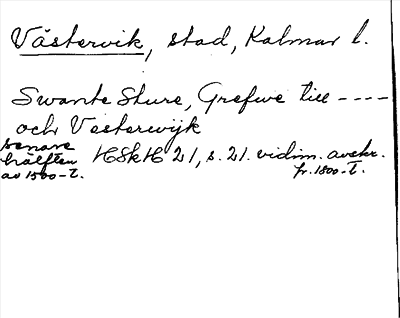 Västervik, stad, Kalmar l.
Swante Sture, Grefwe till ----
och Vesterwijk
senare hälften av 1500-t.
HSkH 21, s. 21. vidim. avskr. fr. 1800-t.